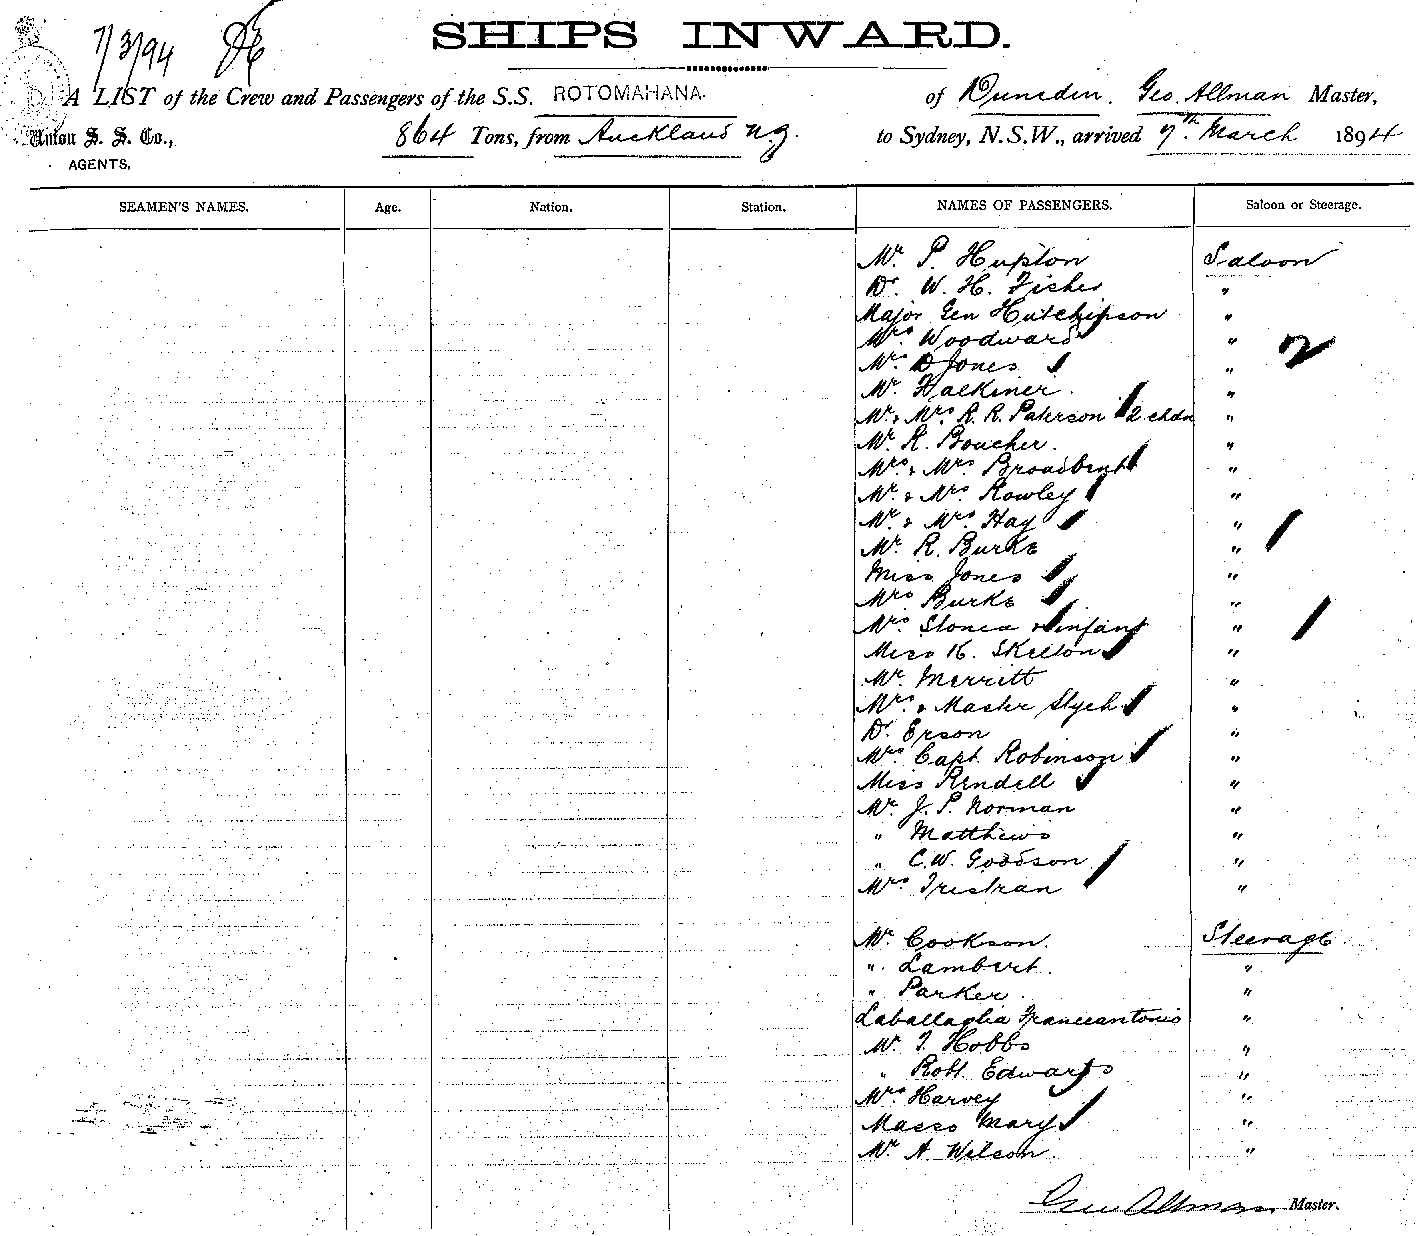 7/3/94 86
SHIPS INWARD.
A LIST of the Crew and Passengers of the S.S. ROTOMAHANA. of Dunedin. Geo. Allman Master,
Union S. S. Co., 864 Tons, from Auckland N.Z. to Sydney, N.S.W., arrived 7th March 1894
AGENTS.
SEAMEN'S NAMES. Age. Nation. Station. NAMES OF PASSENGERS. Saloon or Steerage.
Mr. P. Hupton Saloon
Dr. W. H. Fisher "
Major Gen Hutchinson "
Mrs. Woodward " 2
Mrs. D Jones "
Mr. Halkiner. "
Mr. & Mrs. R. R. Paterson 2 chdn "
Mr. R. Boucher. "
Mrs. & Mrs Broadbent "
Mr. & Mrs. Rowley "
Mr. & Mrs. Hay "
Mr. R. Burke "
Miss Jones "
Mrs Burke "
Mrs. Stonea & infant "
Miss K. Skelton "
Mr. Merritt "
Mrs. & Master Slych "
Dr. Erson "
Mrs Capt. Robinson "
Miss Rendell "
Mr. J. P. Norman "
" Matthews "
" C.W. Goodson "
Mrs Tristran "
Mr. Cookson. Steerage
" Lambert. "
" Parker. "
Laballaglia Francantonio "
Mr. T. Hobbs "
" Robt Edwards "
Mrs Harvey "
Masso Mary "
Mr A. Wilson. "
Geo Allman Master.